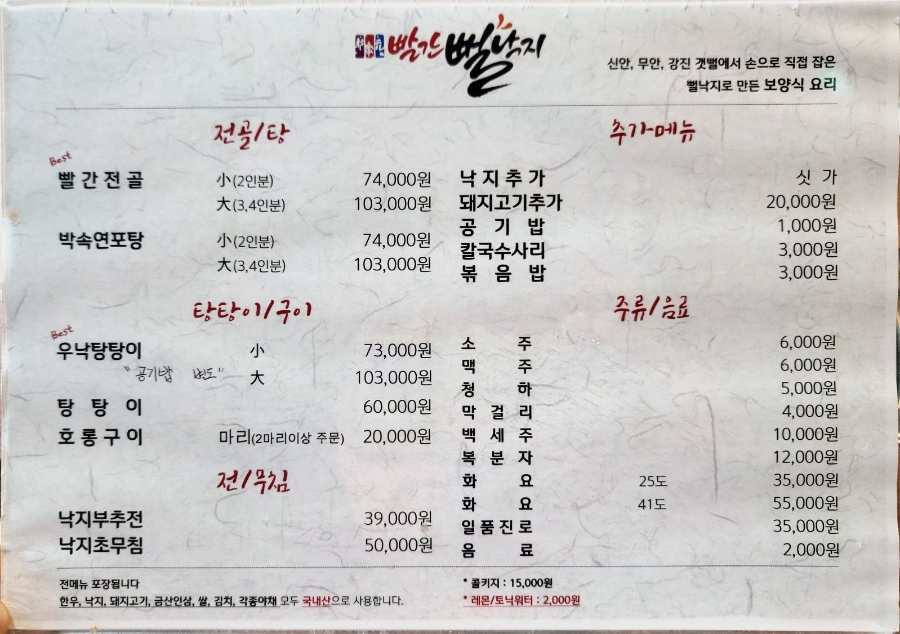 빨간 뻘낙지
신안, 무안, 강진 갯뻘에서 손으로 직접 잡은
뻘낙지로 만든 보양식 요리
전골/탕
Best
빨간전골 小(2인분) 74,000원
大(3,4인분) 103,000원
박속연포탕 小(2인분) 74,000원
大(3,4인분) 103,000원
탕탕이/구이
Best
우낙탕탕이 小 73,000원
"공기밥 별도" 大 103,000원
탕탕이 60,000원
호롱구이 마리(2마리이상 주문) 20,000원
전/무침
낙지부추전 39,000원
낙지초무침 50,000원
추가메뉴
낙지추가 싯가
돼지고기추가 20,000원
공기밥 1,000원
칼국수사리 3,000원
볶음밥 3,000원
주류/음료
소주 6,000원
맥주 6,000원
청하 5,000원
막걸리 4,000원
백세주 10,000원
복분자 12,000원
화요 25도 35,000원
화요 41도 55,000원
일품진로 35,000원
음료 2,000원
전메뉴 포장됩니다
한우, 낙지, 돼지고기, 금산인삼, 쌀, 김치, 각종야채 모두 국내산으로 사용합니다.
* 콜키지 : 15,000원
* 레몬/토닉워터 : 2,000원